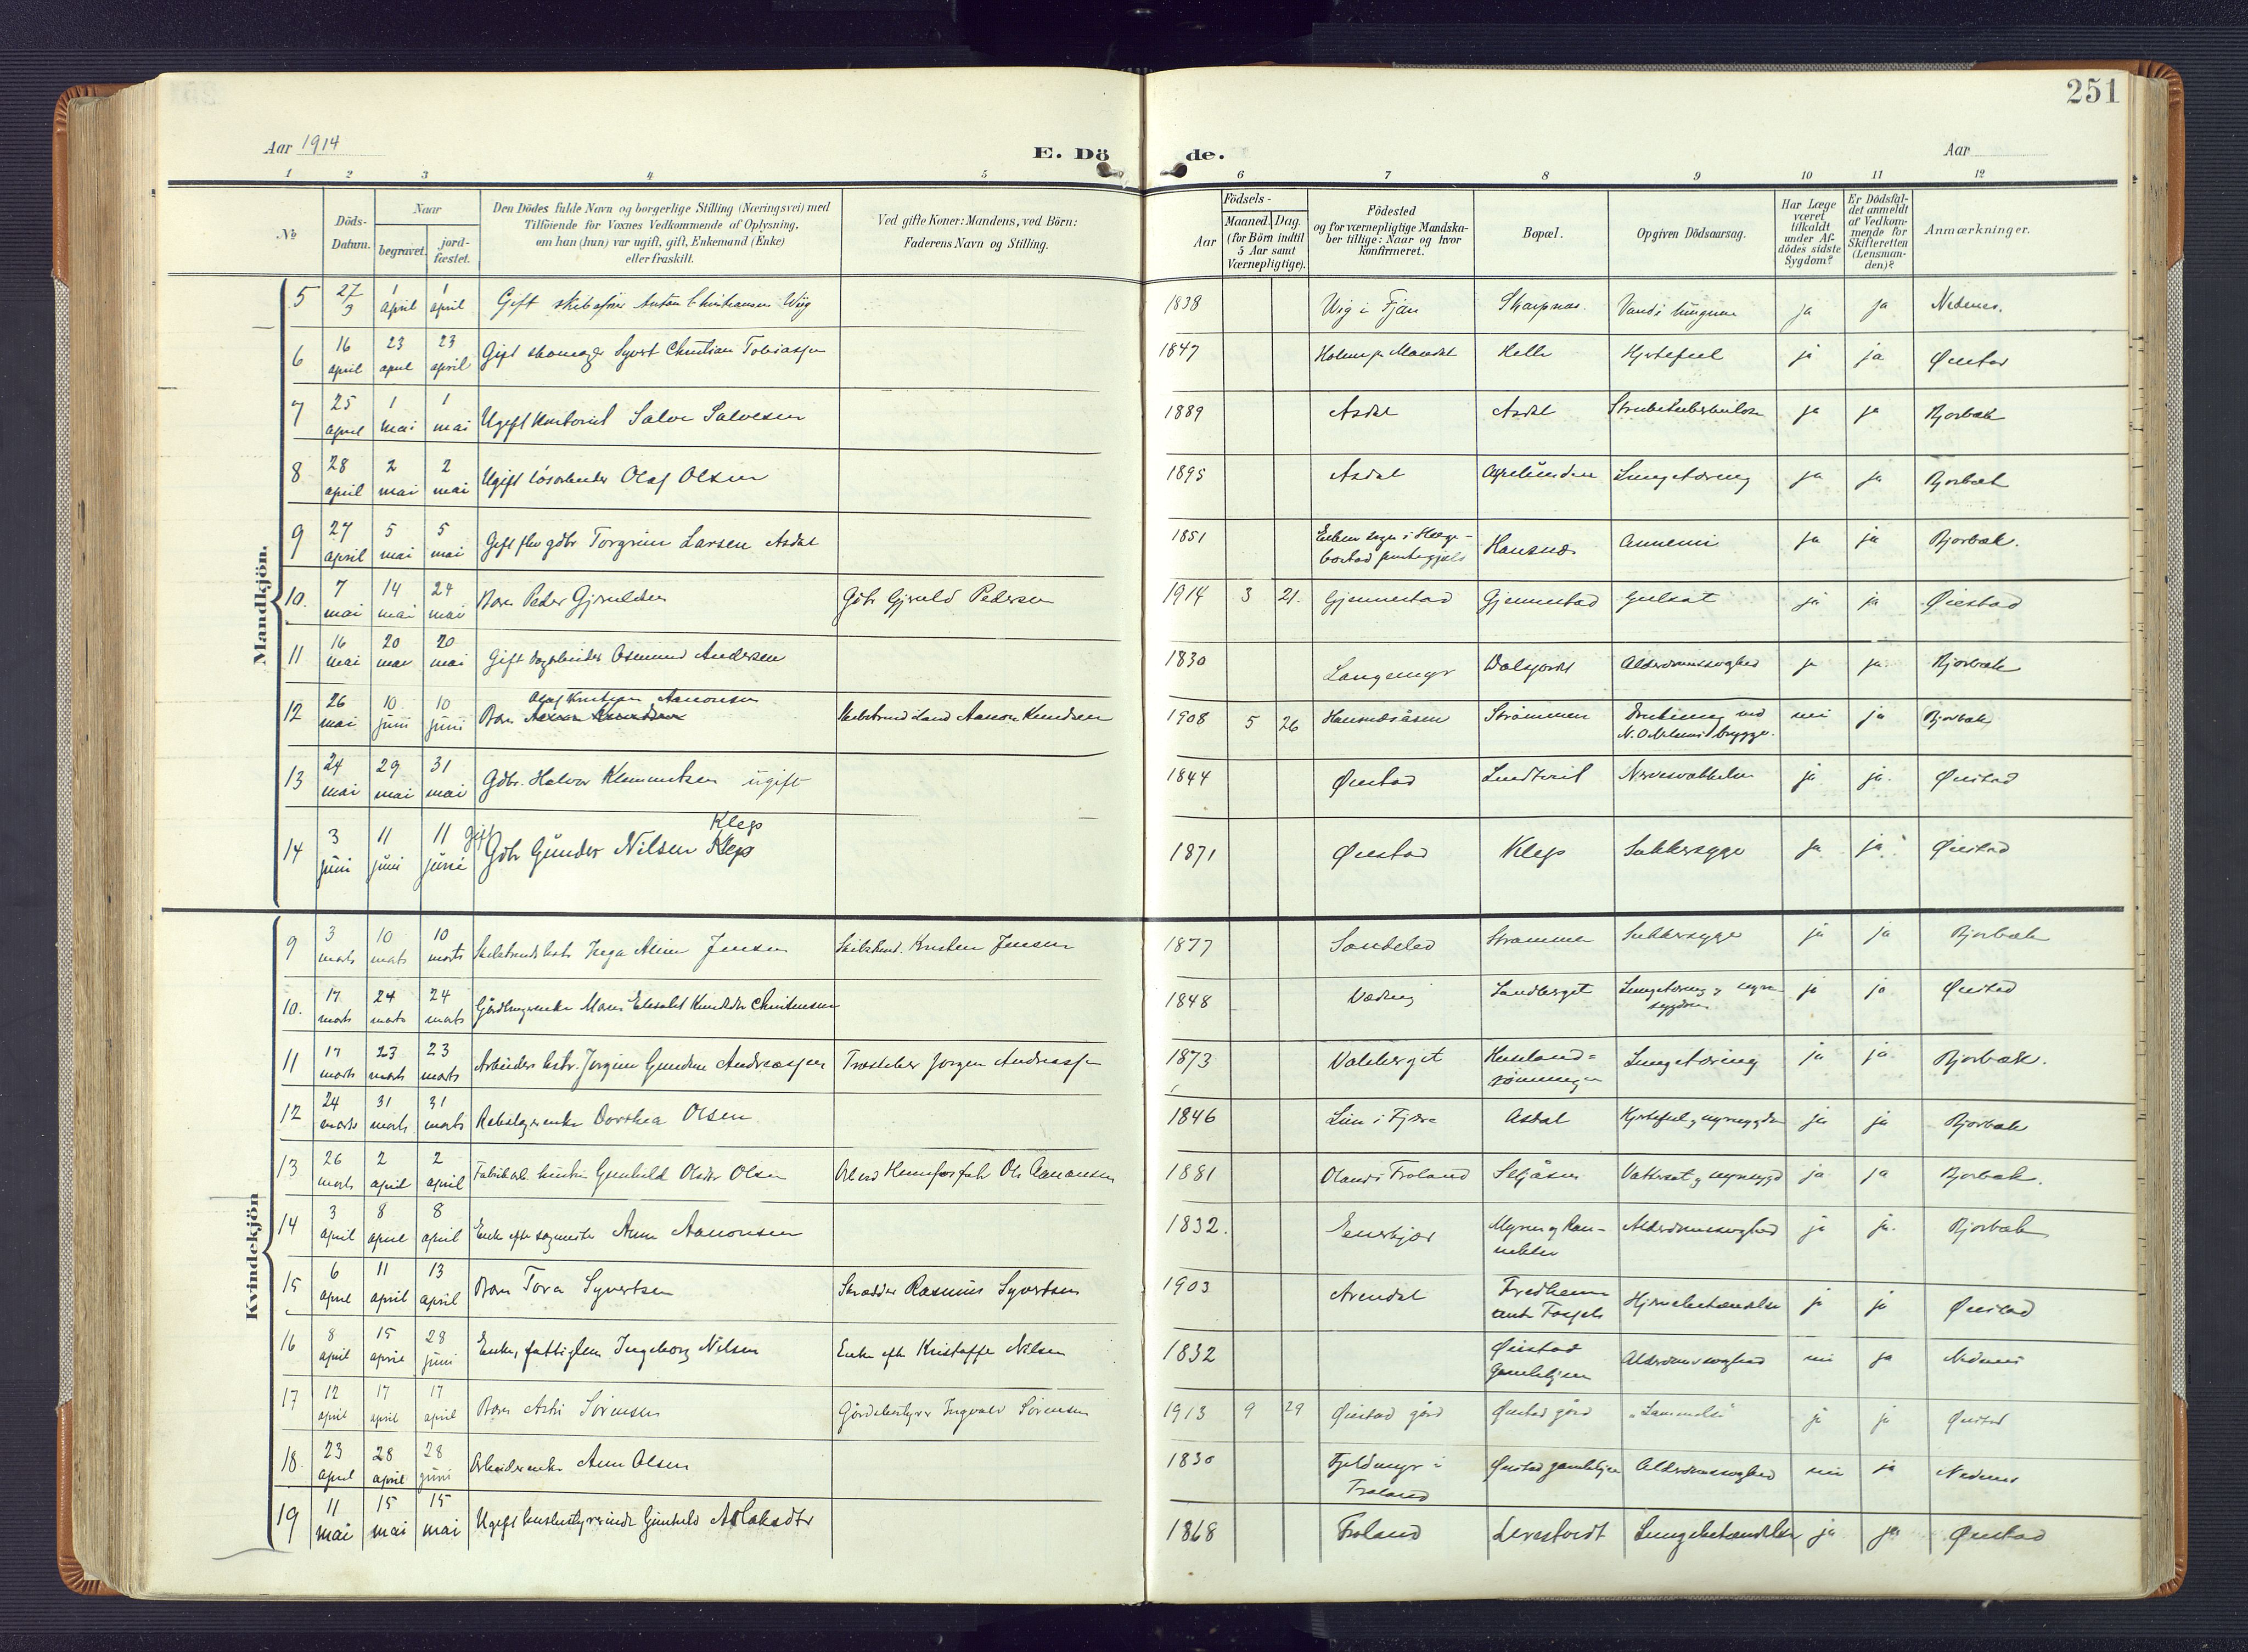 251
Aar 1914
E. Dö
de.
Aar
1 2 3 4 5 6 7 8 9 10 11 12
№
Döds-
Datum.
Naar
begravet.
jord-
fæstet.
Den Dödes fulde Navn og borgerlige Stilling (Næringsvei) med
Tilföiende for Voxnes Vedkommende af Oplysning,
om han (hun) var ugift, gift, Enkemand (Enke)
eller fraskilt.
Ved gifte Koner: Mandens, ved Börn:
Faderens Navn og Stilling.
Födsels-
Aar
Maaned. Dag.
(for Börn indtil
5 Aar samt
Værnepligtige).
Födested
og for værnepligtige Mandska-
ber tillige: Naar og hvor
konfirmeret.
Bopæl.
Opgiven Dödsaarsag.
Har Læge
været
tilkaldt
under Af-
dödes sidste
Sygdom?
Er Dödsfal-
det anmeldt
af Vedkom-
mende for
Skifteretten
(Lensman-
den)?
Anmærkninger.
Mandkjön.
5 27/3 1 april 1 april Gift Anton Christiansen Wiig 1838 Wig i Fjære Skarpnes Vand i lungene ja ja Nedenes.
6 16 april 23 april 23 april Gift skomager Syvert Christian Tobiassen 1847 Holum p. Mandal Helle Hjertefeil ja ja Øiestad
7 25 april 1 mai 1 mai Ugift kontorist Salve Salvesen 1889 Asdal Asdal Strubetuberkulose ja ja Bjorbæk
8 28 april 2 mai 2 mai Ugift løsarbeider Olaf Olsen 1895 Asdal Lungetæring ja ja Bjorbæk
9 27 april 5 mai 5 mai Gift gdbr Torgrim Larsen Asdal 1851 Eiken sogn i Hæge-
bostad prestegjæld Hansnes Annemi ja ja Bjorbæk.
10. 7 mai 14 mai 24 mai Barn Peder Gjeruldsen Gdbr Gjeruld Pedersen 1914 3 21. Gjennestad Gjennestad Gulsot ja ja Øiestad
11 16 mai 20 mai 20 mai Gift dagarbeider Osmund Andersen 1830 Langemyr Dalsfjordet Alderdomssvaghed ja ja Bjorbæk
12 26 mai 10 juni 10 juni Barn Olaf Kristjan Aanonsen Aanon Knudsen 1908 5 26 Hansnesåsen Strømmen Drukning ved
brygge. nei ja Bjorbæk
13 24 mai 29 mai 31 mai Gdbr. Halvor Klemmetsen ugift 1844 Øiestad Lindtveit ja ja. Øiestad
14 3 juni 11 juni 11 juni gift Gdbr Gunder Nilsen Klep Klep 1871 Øiestad Klep Sukkersyge ja ja Øiestad
Kvindekjön
9 3 marts 10 marts 10 marts Inga Jensen Kristen Jensen 1877 Søndeled Strømmen Sukkersyge ja ja Bjorbæk
10. 17 marts 24 marts 24 marts Maren Elisabet Christensen 1848 Sandberget Lungetæring og nyre-
sygdom ja ja Øiestad
11 17 marts 23 marts 23 marts Arbeiders hstr. Jørgine Gundine Andreassen Jørgen Andreassen 1873 Valeberget Lungetæring ja ja Bjorbæk.
12 24 marts 31 marts 31 marts Dorthea Olsen 1846 i Fjære Asdal Hjertefeil og nyresygdom ja ja Bjorbæk
13 26 marts 2 april 2 april Gunhild Olsdtr Olsen Ole Aanonsen 1881 Oland i Froland Seljåsen Vattersot og nyresygd ja ja Bjorbæk.
14 3 april 8 april 8 april Enke efter sagmester Anne Aanonsen 1832. Alderdomssvaghed ja ja. Bjorbæk
15 6 april 11 april 13 april Barn Tora Syvertsen Skrædder Rasmus Syvertsen 1903 Arendal Fredheim Hjernebetændelse ja ja Øiestad
16 8 april 15 april 28 juni Enke, fattiglem Ingeborg Nilsen Enke efter Kristoffer Nilsen 1832 Øiestad
Gamlehjem Alderdomssvaghed nei ja Nedenes
17 12 april 17 april 17 april Barn Sørensen Gårdsbestyrer Ingvald Sørensen 1913 9 29 Øiestad gård Øiestad gård ja ja Øiestad
18. 23 april 28 april 28 juni Arbeiderenke Anne Olsen 1830 Fjeldmyr i
Froland Øiestad gamlehjem Alderdomssvaghed nei ja Nedenes
19 11 mai 15 mai 15 mai Ugift husbestyrerinde Gunhild Aslaksdtr 1868 Froland Løvestvedt Lungebetændelse ja ja Øiestad